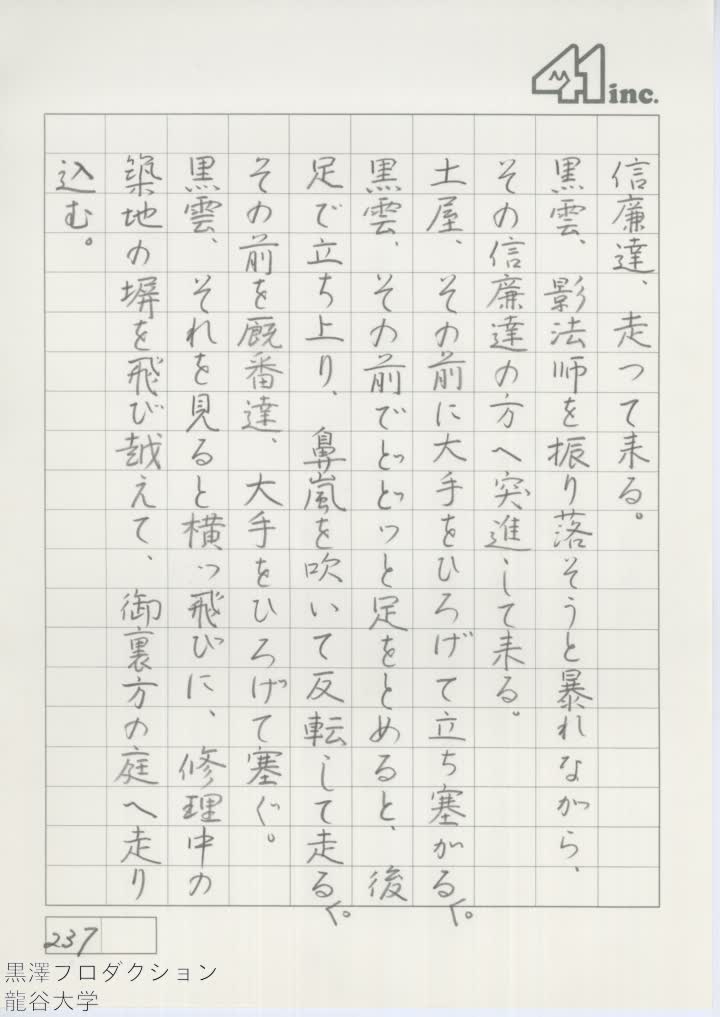 41 inc.
信廉達、走って来る。
黒雲、影法師を振り落そうと暴れながら、
その信廉達の方へ突進して来る。
土屋、その前に大手をひろげて立ち塞がる。
黒雲、その前でどどッと足をとめると、後
足で立ち上り、鼻嵐を吹いて反転して走る。
その前を厩番達、大手をひろげて塞ぐ。
黒雲、それを見ると横っ飛びに、修理中の
築地の塀を飛び越えて、御裏方の庭へ走り
込む。
237
黒澤プロダクション
龍谷大学